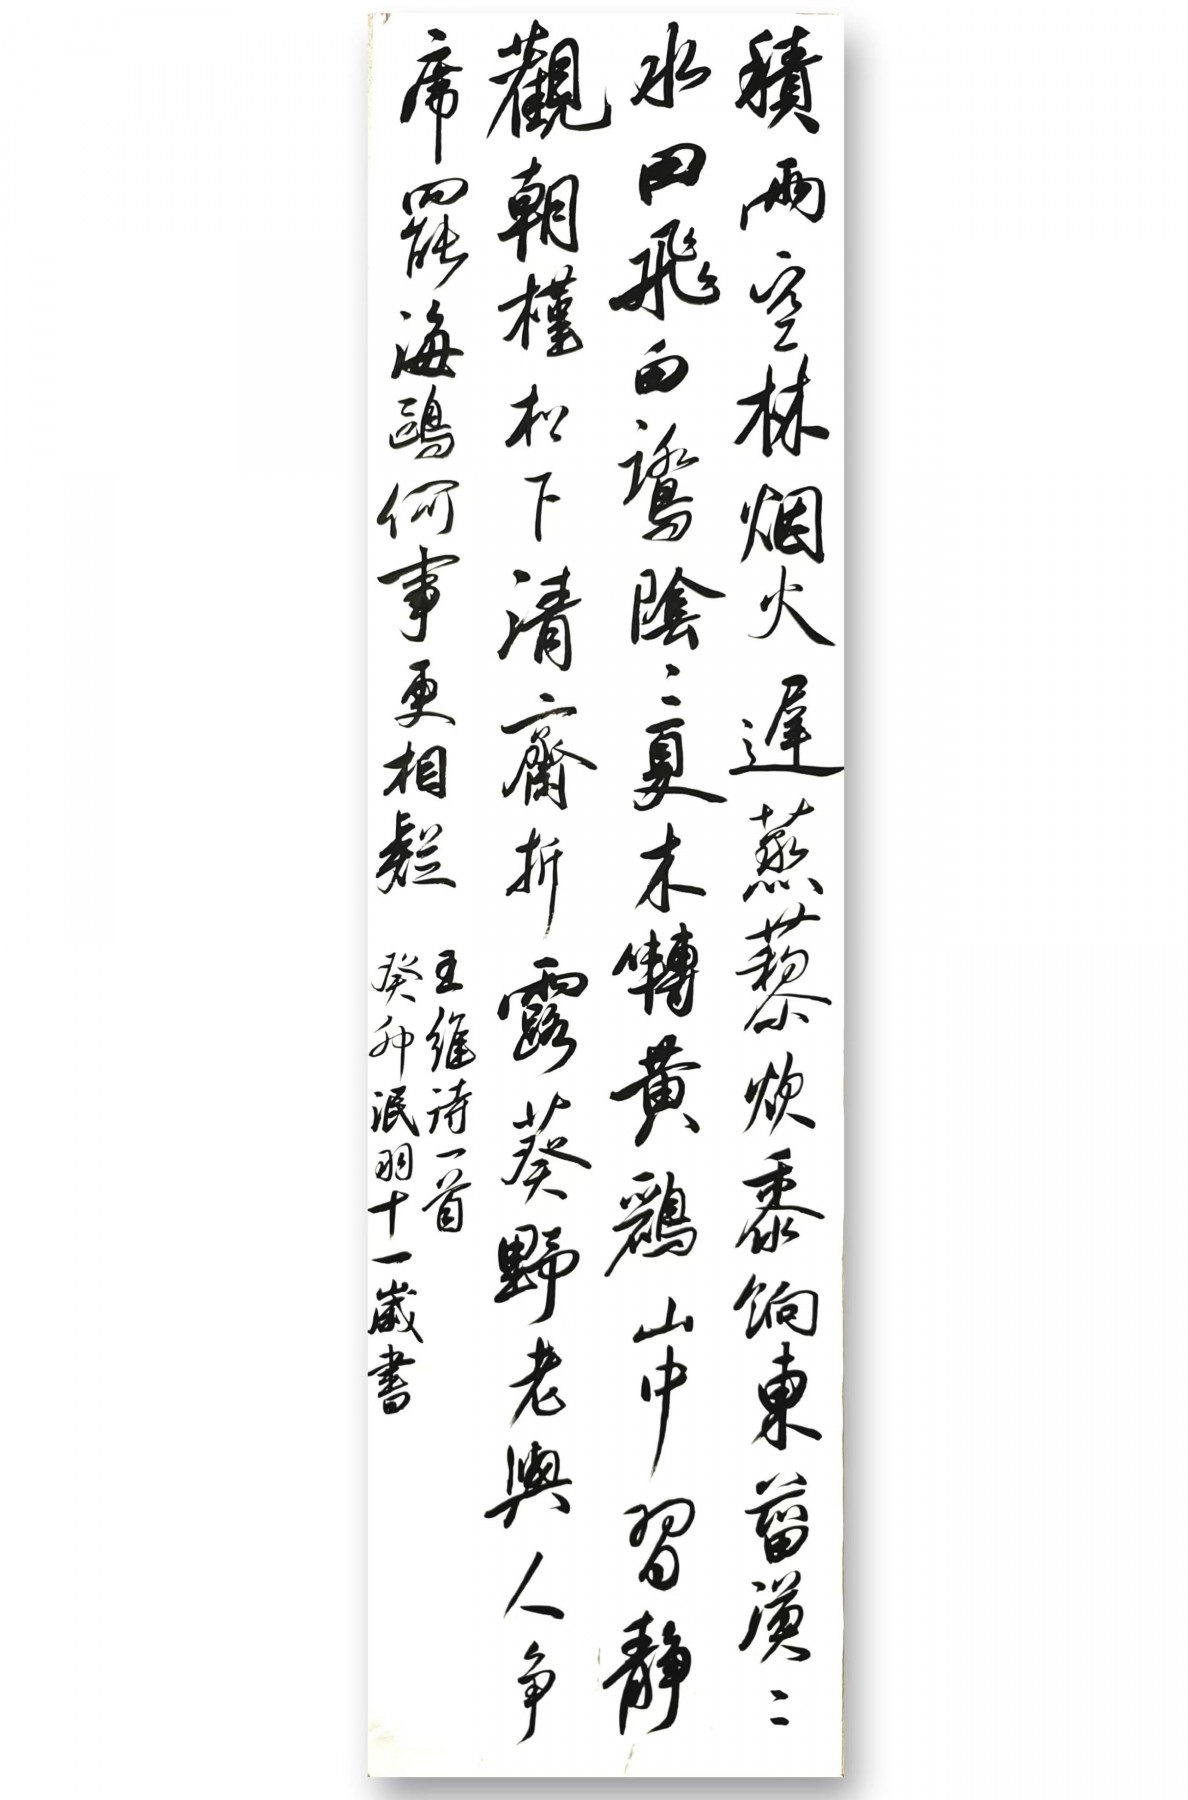 積雨空林烟火遲蒸藜炊黍餉東菑漠〻
水田飛白鷺陰〻夏木囀黄鸝山中習靜
觀朝槿松下清齋折露葵野老與人争
席罷海鷗何事更相疑
王維诗一首
癸卯泯羽十一歲書